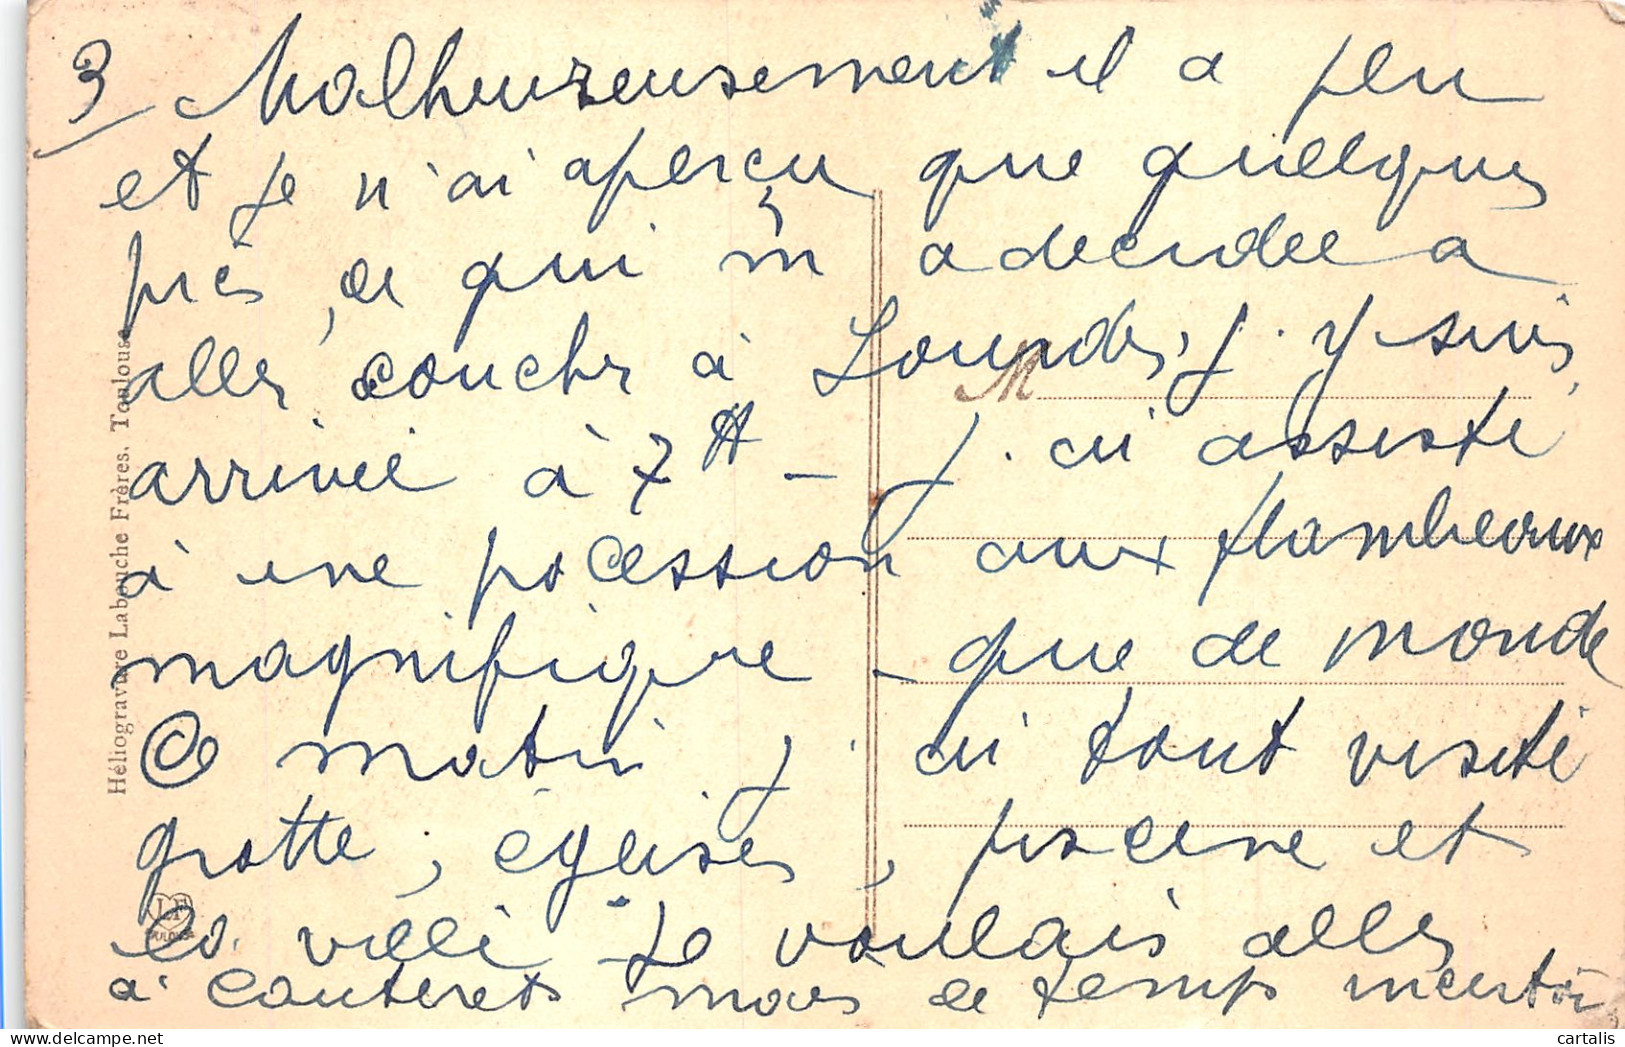 3 Malheureusement il a plu
et je n'ai aperçu que quelques
près, ce qui m'a décidée a
aller coucher à Lourdes, j'y suis
arrivée à 7H - j'ai assisté
à une pocession aux flambeaux
magnifique - que de monde
Ce matin j'ai tout visité
grotte, églises, piscine et
la ville - Je voulais aller
à Cauterets mais le temps incertain
M
Héliogravure Labouche Frères, Toulouse
LF
TOULOUSE
cartalis
www.delcampe.net